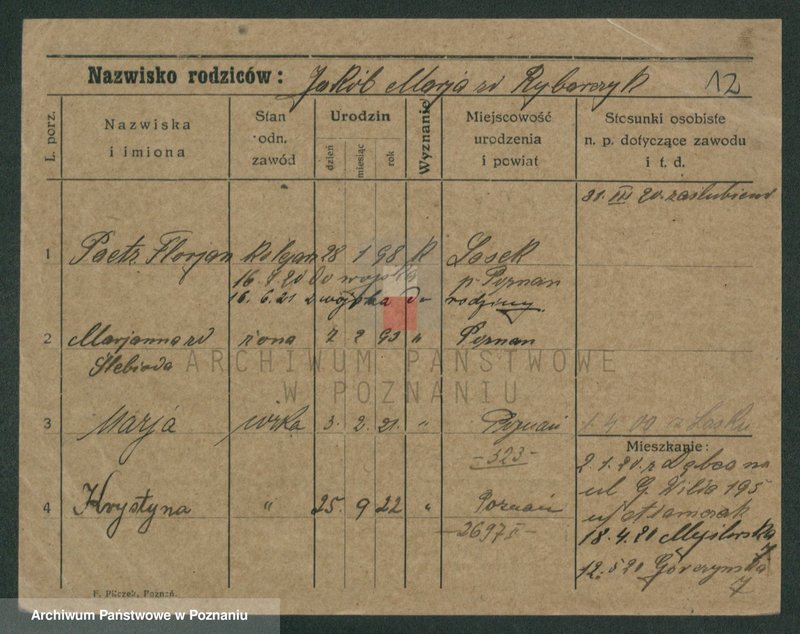 Nazwisko rodziców: Jakób Marja zd Rybarczyk 12
L. porz.
Nazwiska i imiona
Stan odn. zawód
Urodzin
dzień
miesiąc
rok
Wyznanie
Miejscowość urodzenia i powiat
Stosunki osobiste n. p. dotyczące zawodu i t. d.
31. III 20. zaslubieni
1 Paetz Florjan kolejan 28 1 98 k Lasek
16. 20 do wojska p. Poznan
16. 6. 21 z wojska do rodziny
2 Marjanna zd żona 2 93 " Poznan
Slebioda
ARCHIWUM PAŃSTWOWE
W POZNANIU
3 Marja córka 3. 2. 21. " Poznań
- 323 -
4 Krystyna " 25. 9 22 " Poznań
- 2697 II -
z Lasku
Mieszkanie:
2. 1. 20. z Dębca na
ul G. Wilda 195
u Adamczak
18. 4. 20 Myśliwska
7
12. 5 20 Górczyńska
7
F. Pilczek, Poznań.
Archiwum Państwowe w Poznaniu